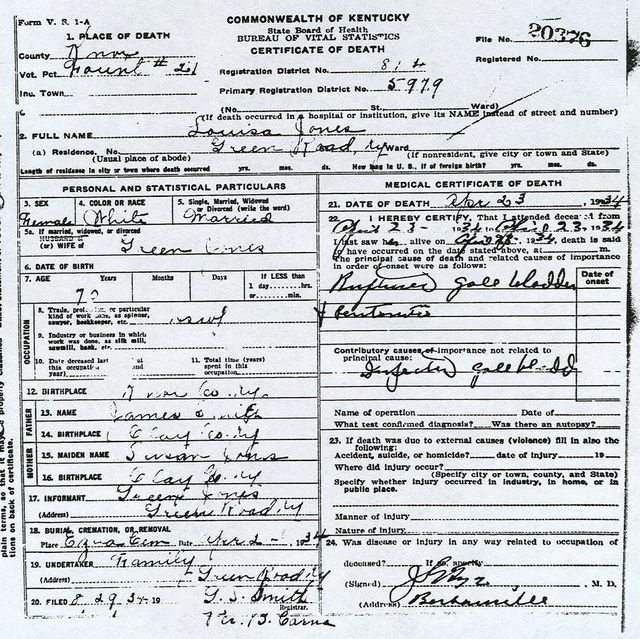 Form V. S. 1-A
COMMONWEALTH OF KENTUCKY
State Board of Health
BUREAU OF VITAL STATISTICS
CERTIFICATE OF DEATH
File No. 20376
Registered No.
1. PLACE OF DEATH
County Knox
Vot. Pct. Fount # 21
Inc. Town
Registration District No. 814
Primary Registration District No. 5979
(No. St. Ward)
(If death occurred in a hospital or institution, give its NAME instead of street and number)
2. FULL NAME Louisa Jones
(a) Residence. No. Green Road Ky Ward
(Usual place of abode) (If nonresident, give city or town and State)
Length of residence in city or town where death occurred yrs. mos. ds. How long in U. S., if of foreign birth? yrs. mos. ds.
PERSONAL AND STATISTICAL PARTICULARS
3. SEX Female
4. COLOR OR RACE White
5. Single, Married, Widowed or Divorced (write the word) Married
5a. If married, widowed, or divorced
HUSBAND of
(or) WIFE of Green Jones
6. DATE OF BIRTH
7. AGE Years Months Days If LESS than
1 day hrs.
or min.
OCCUPATION
8. Trade, profession, or particular
kind of work done, as spinner,
sawyer, bookkeeper, etc.
9. Industry or business in which
work was done, as silk mill,
sawmill, bank, etc.
10. Date deceased last
this occupation and
year)
11. Total time (years)
spent in this
occupation
12. BIRTHPLACE Knox Co Ky
FATHER
13. NAME James Smith
14. BIRTHPLACE Clay Co Ky
MOTHER
15. MAIDEN NAME Susan Jones
16. BIRTHPLACE Clay Co Ky
17. INFORMANT Green Jones
(Address) Green Road Ky
18. BURIAL, CREMATION, OR REMOVAL
Place Cem Date 1934
19. UNDERTAKER Family
(Address) Green Road Ky
20. FILED 8 29 34 19 G. S. Smith
Registrar.
MEDICAL CERTIFICATE OF DEATH
21. DATE OF DEATH Apr 23, 1934
22. I HEREBY CERTIFY, That I attended deceased from
April 23 - 1934 to April 23, 1934
I last saw h alive on 1934, death is said
to have occurred on the date stated above, at m.
The principal cause of death and related causes of importance
in order of onset were as follows:
Date of
onset
Ruptured gall bladder
Peritonitis
Contributory causes of importance not related to
principal cause:
Infected gall bladd
Name of operation Date of
What test confirmed diagnosis? Was there an autopsy?
23. If death was due to external causes (violence) fill in also the
following:
Accident, suicide, or homicide? date of injury 19
Where did injury occur?
(Specify city or town, county, and State)
Specify whether injury occurred in industry, in home, or in
public place.
Manner of injury
Nature of injury
24. Was disease or injury in any way related to occupation of
deceased? If so, specify
(Signed) M. D.
(Address) Barbourville
plain terms, so that it may be properly classified.
tions on back of certificate.